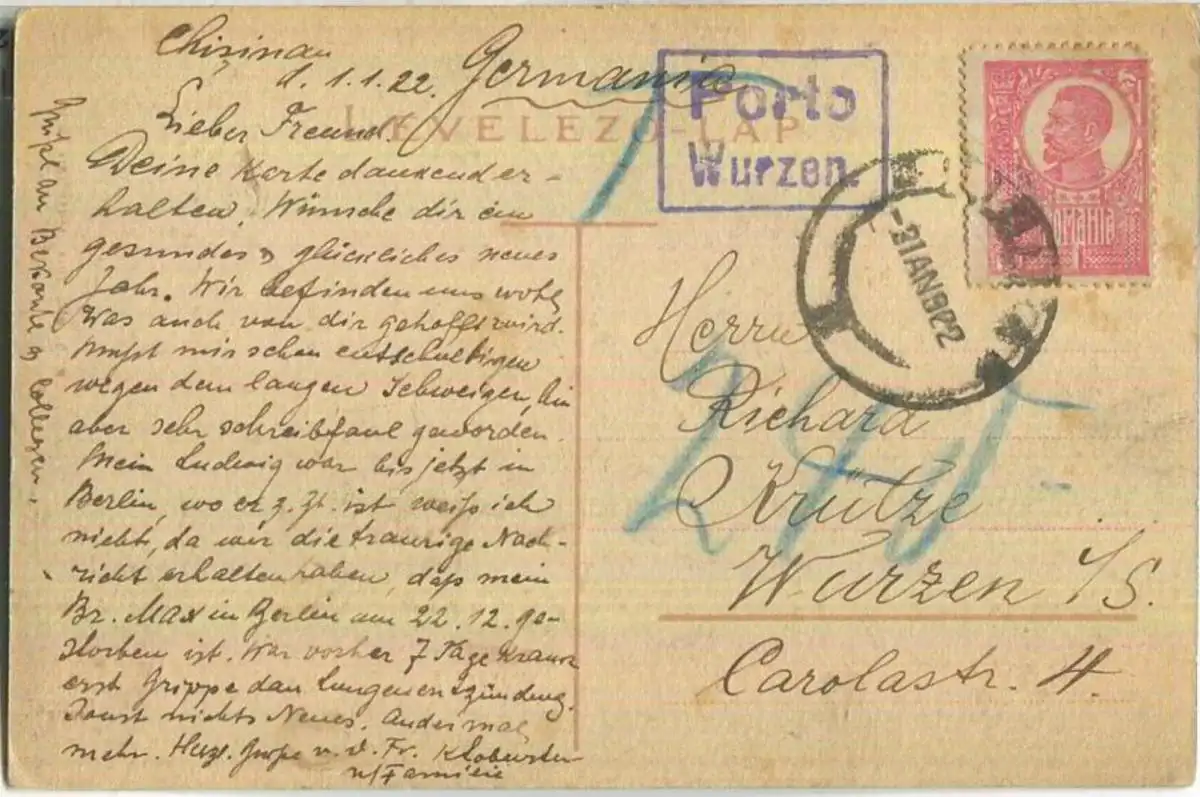 Chisinau
d. 1.1.22.
Germania
LEVELEZŐ-LAP
Lieber Freund.
Deine Karte dankend er-
halten. Wünsche dir ein
gesundes & glückliches neues
Jahr. Wir befinden uns wohl,
Was auch von dir gehofft wird.
Mußt mir schon entschuldigen
wegen dem langen Schweigen, bin
aber sehr schreibfaul geworden.
Mein Ludwig war bis jetzt in
Berlin, wo er z. Zt. ist weiß ich
nicht, da wir die traurige Nach-
richt erhalten haben, daß mein
Br. Max in Berlin am 22.12. ge-
storben ist. War vorher 7 Tage krank
erst Grippe dan Lungenentzündung.
Sonst nichts Neues. Andermal
mehr. Herzl. Grüße v. d. Fr.
u/Familie
Grüße an Bekante & Collegen.
Porto
Wurzen.
ROMANIA
1
-3 IAN 922
Herrn
Richard
Krütze
Wurzen i/S.
Carolastr. 4.
240